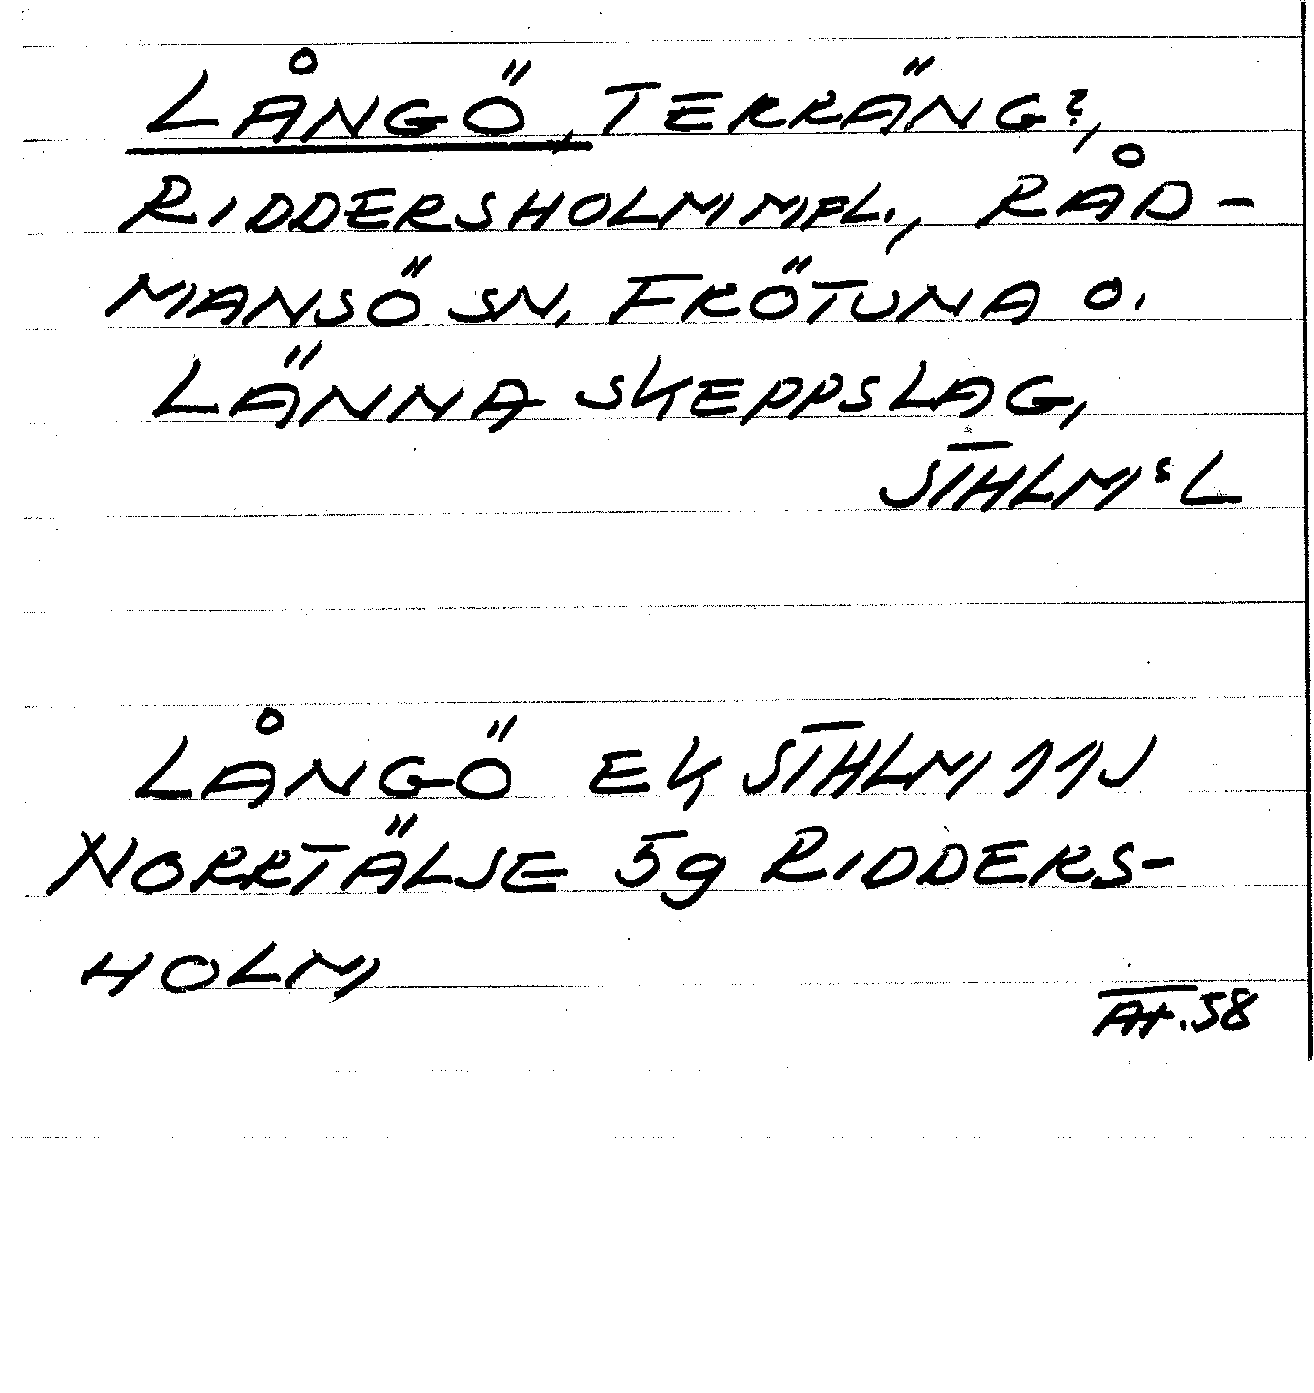 LÅNGÖ, TERRÄNG?,
RIDDERSHOLM MFL., RÅD-
MANSÖ SN, FRÖTUNA O.
LÄNNA SKEPPSLAG,
STHLMS L
LÅNGÖ EK STHLM 11J
NORRTÄLJE 5g RIDDERS-
HOLM